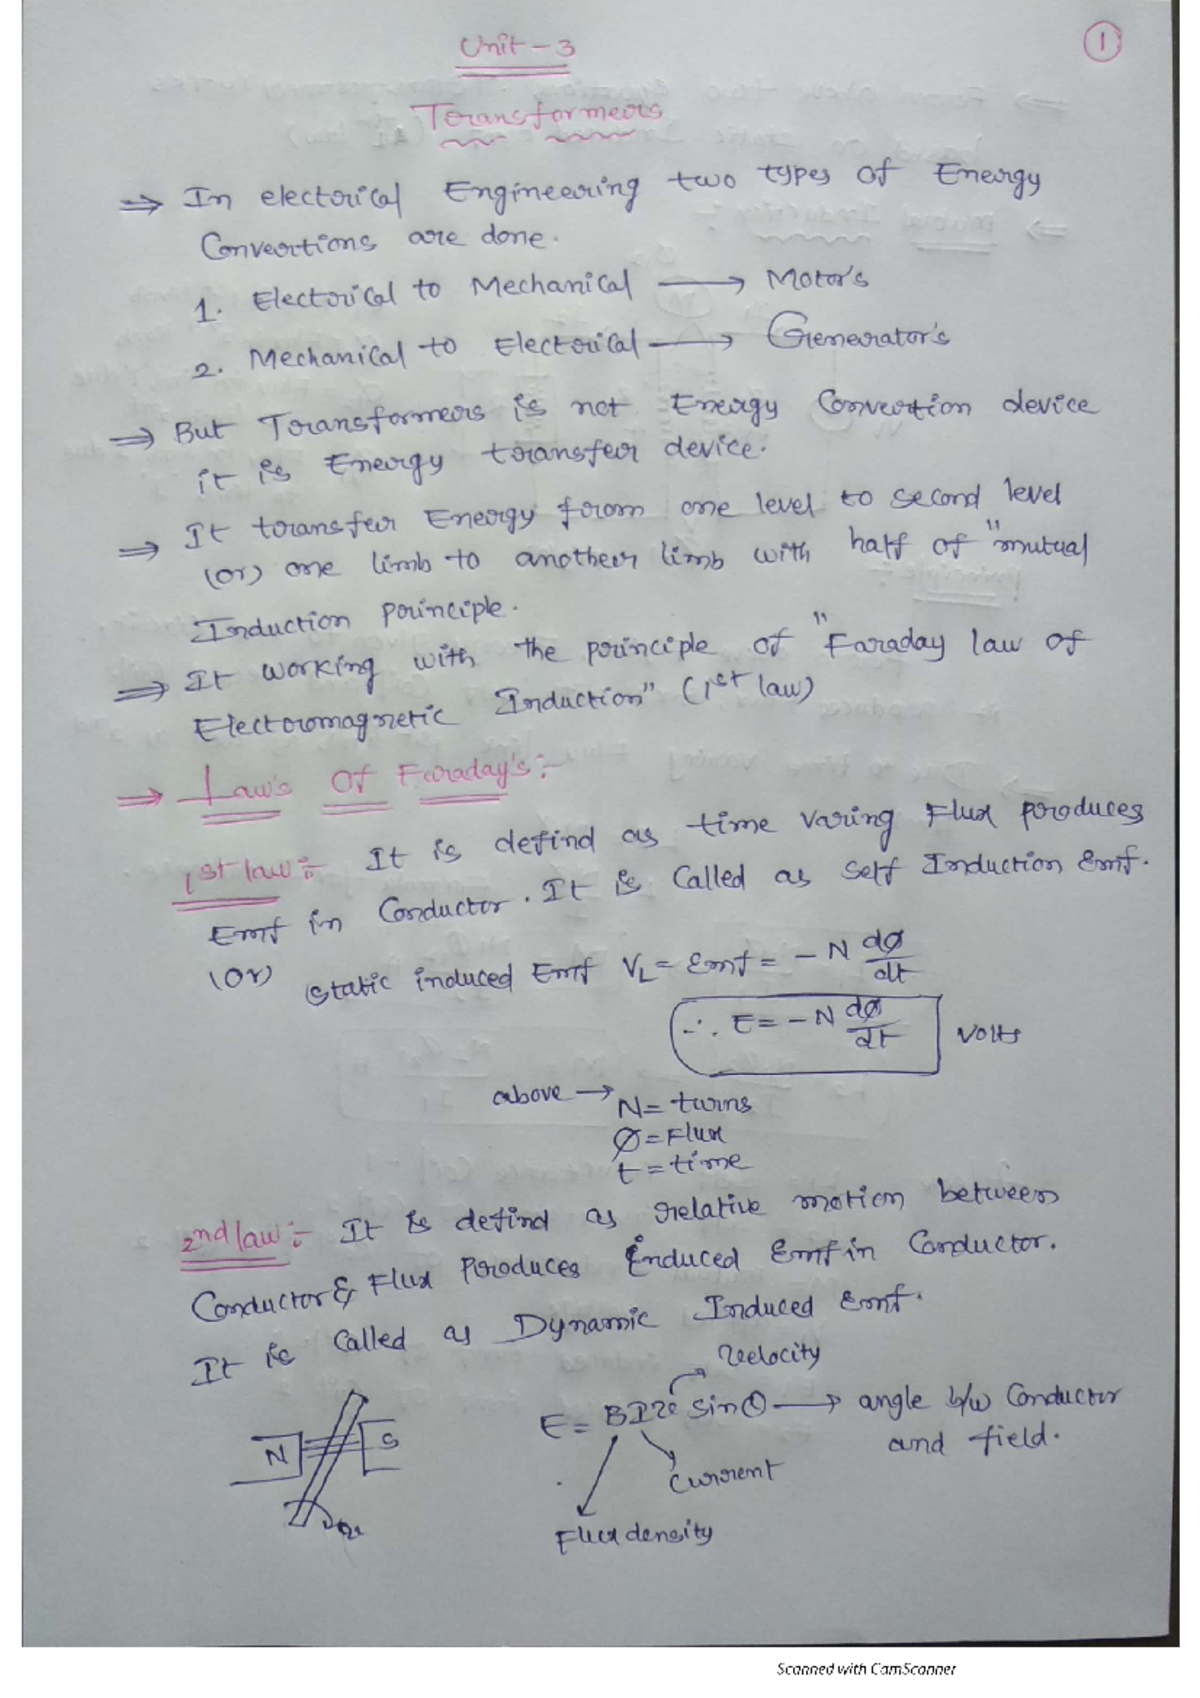 1
Unit - 3
Transformers
⇒ In electrical Engineering two types of Energy
Convertions are done.
1. Electrical to Mechanical ⟶ Motor's
2. Mechanical to Electrical ⟶ Generator's
⇒ But Transformers is not Energy Convertion device
it is Energy transfer device.
⇒ It transfer Energy from one level to second level
(or) one limb to another limb with half of "mutual
Induction principle.
⇒ It working with the principle of "Faraday law of
Electromagnetic Induction" (1st law)
⇒ Law's Of Faraday's :-
1st law :- It is defind as time varing Flux produces
Emf in Conductor. It is Called as self Induction Emf.
(Or) Static induced Emf VL = Emf = - N dø/dt
∴ E = - N dø/dt Volts
above → N = turns
Ø = Flux
t = time
2nd law :- It is defind as relative motion between
Conductor & Flux Produces induced Emf in Conductor.
It is Called as Dynamic Induced Emf.
velocity
E = BIv sinθ ⟶ angle b/w Conductor
and field.
N S
Current
Flux density
Scanned with CamScanner